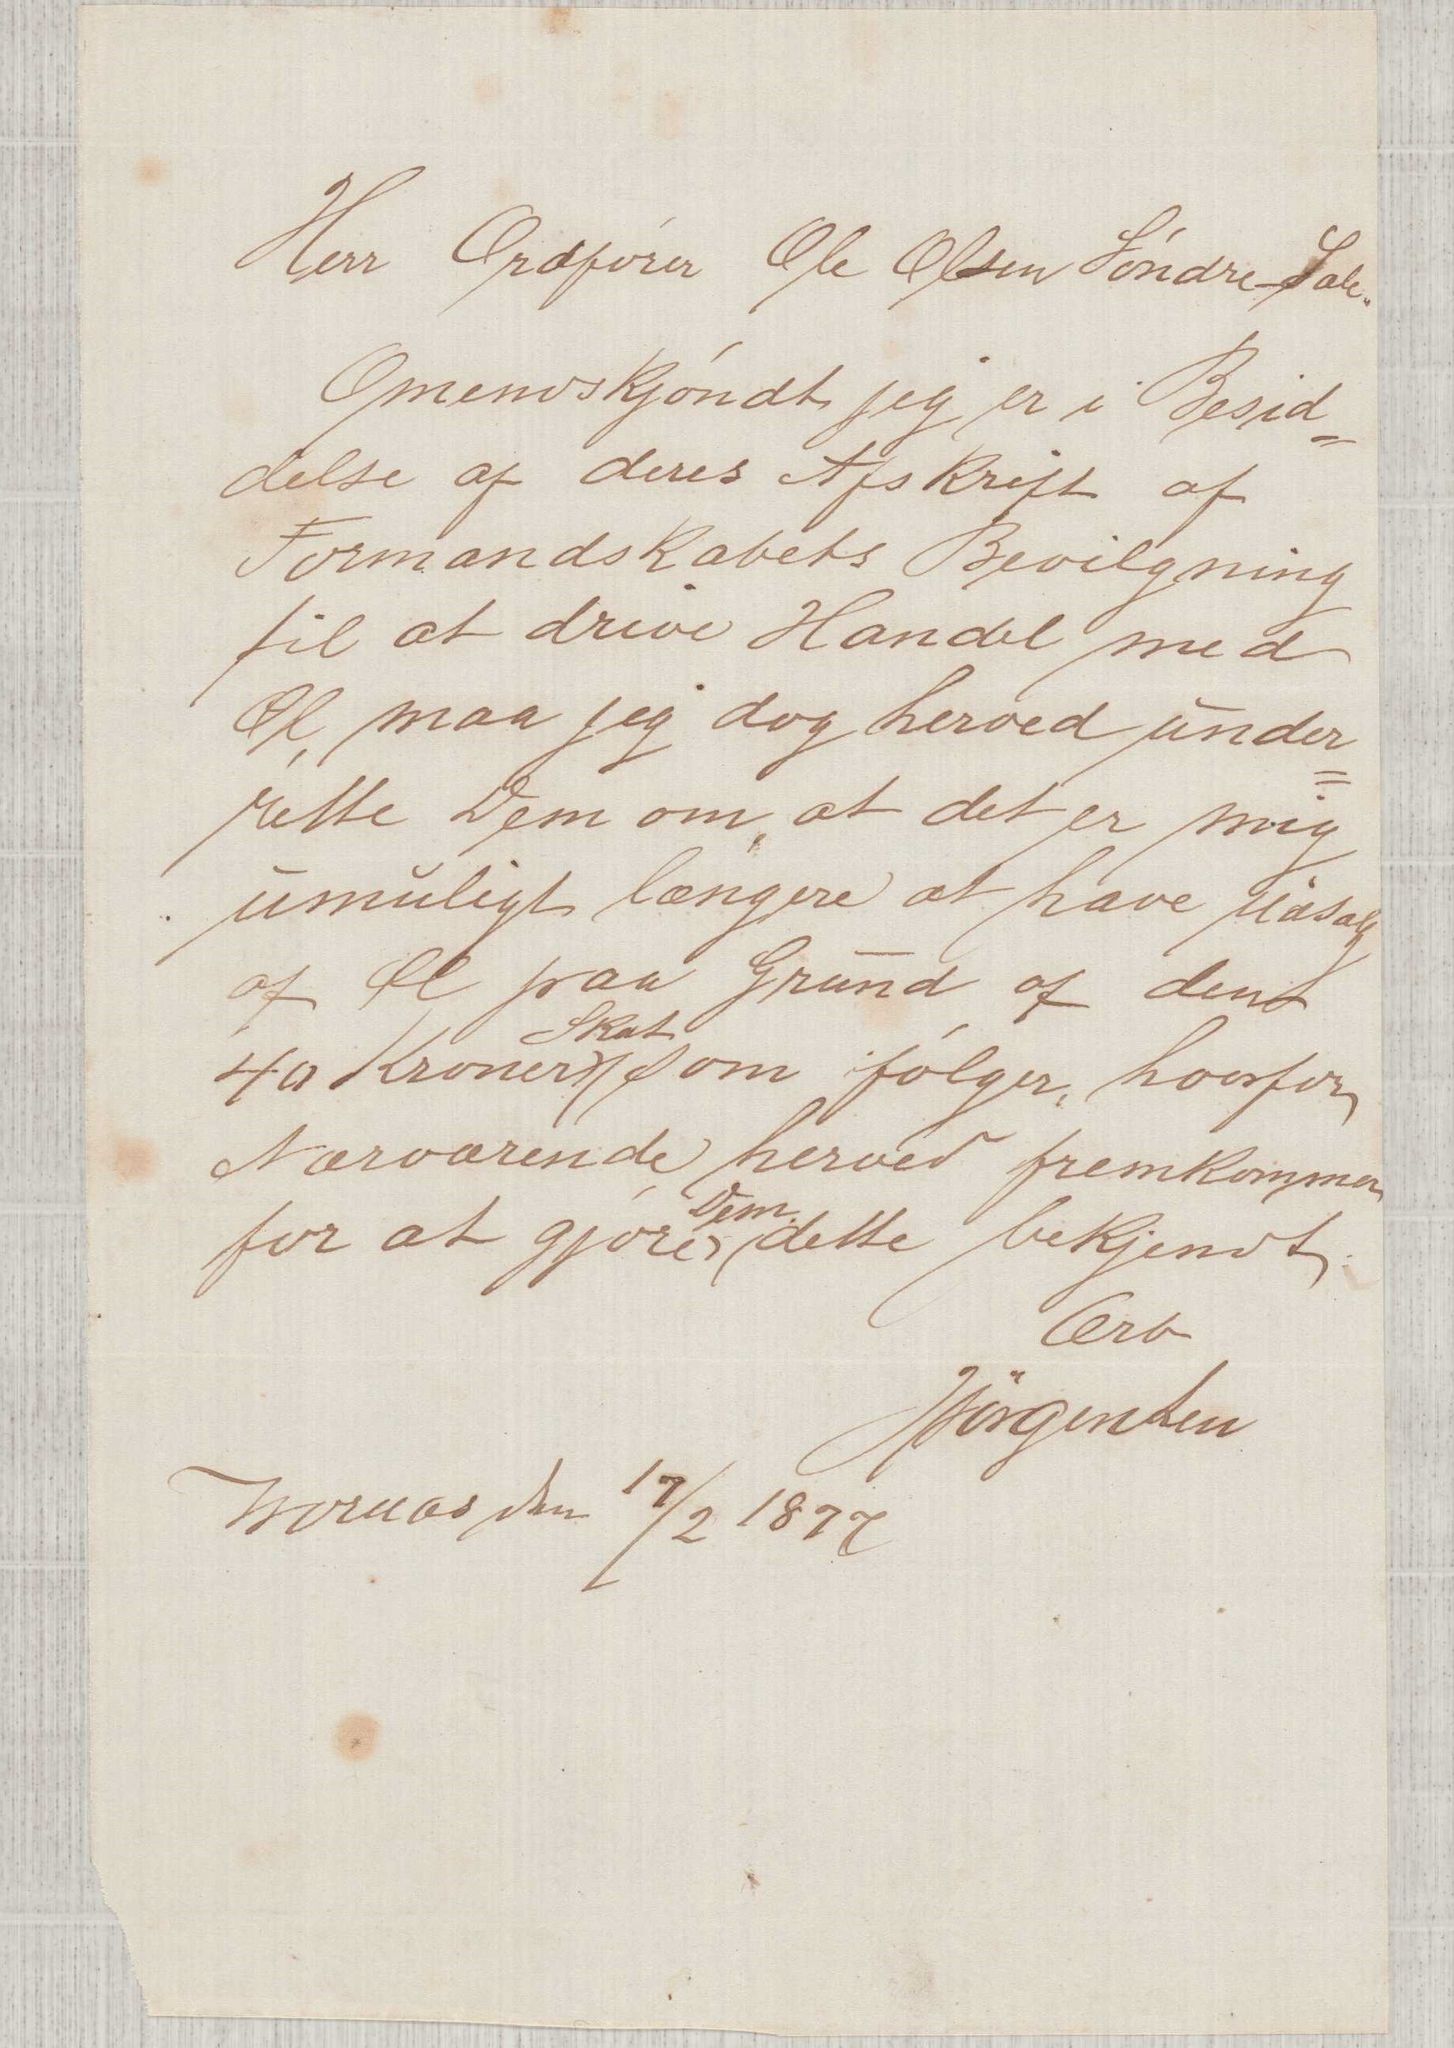 Herr Ordfører Ole Olsen Søndre-Sale.
Omendskjøndt jeg er i Besid=
delse af deres Afskrift af
Formandskabets Bevilgning
til at drive Handel med
Øl, maa jeg dog herved under=
rette Dem om, at det er mig
umuligt længere at have Udsalg
af Øl paa Grund af den
40 Kroners Skat som følger, hvorfor
Nærværende herved fremkommer
for at gjøre Dem dette bekjendt.
Ærb
Jørgensen
den 17/2 1877